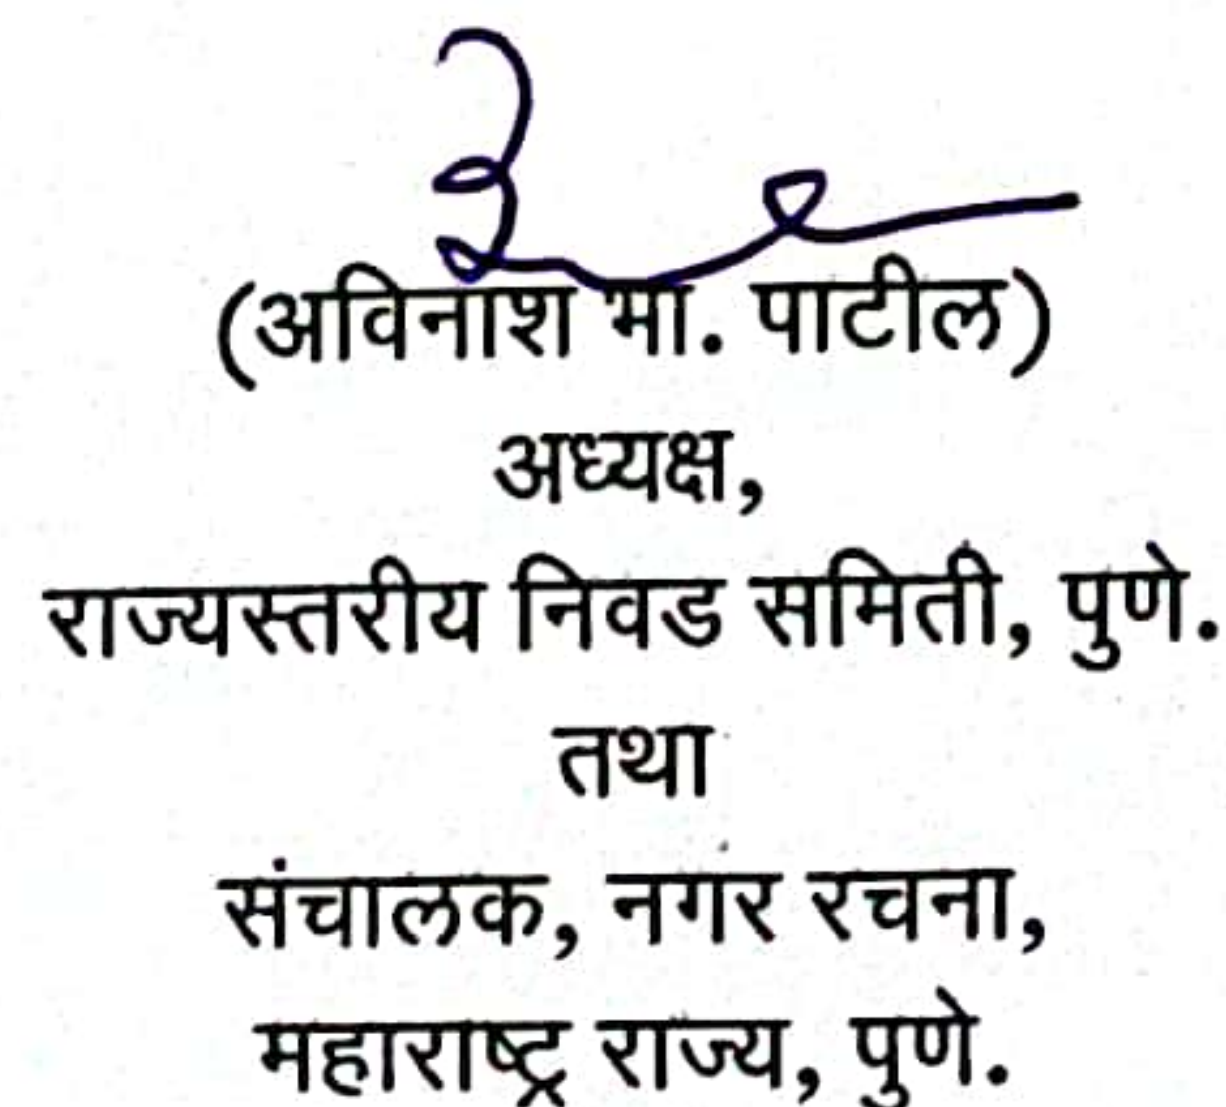 (अविनाश भा. पाटील)
अध्यक्ष,
राज्यस्तरीय निवड समिती, पुणे.
तथा
संचालक, नगर रचना,
महाराष्ट्र राज्य, पुणे.